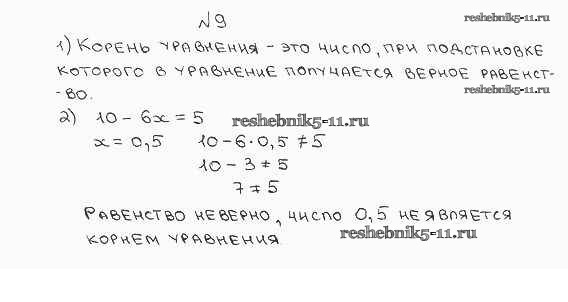 № 9 reshebnik5-11.ru
1) Корень уравнения - это число, при подстановке
которого в уравнение получается верное равенст-
-во. reshebnik5-11.ru
2) 10 - 6x = 5 reshebnik5-11.ru
x = 0,5 10 - 6 · 0,5 ≠ 5
10 - 3 ≠ 5
7 ≠ 5
Равенство неверно, число 0,5 не является
корнем уравнения. reshebnik5-11.ru